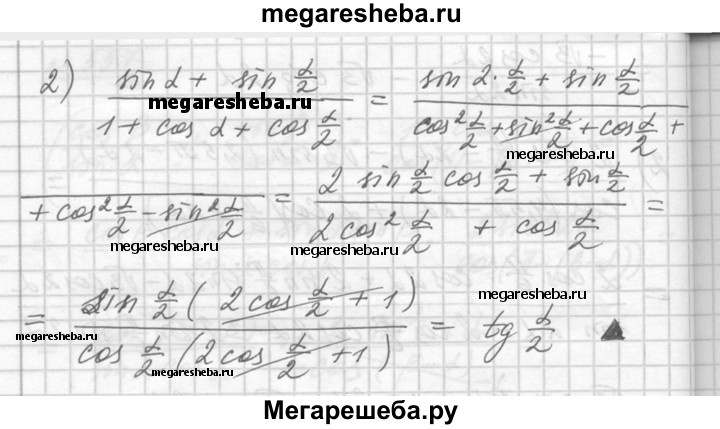 megaresheba.ru
2) (sin α + sin α/2) / (1 + cos α + cos α/2) = (sin 2·α/2 + sin α/2) / (cos² α/2 + sin² α/2 + cos α/2 +
megaresheba.ru
megaresheba.ru
+ cos² α/2 − sin² α/2) = (2 sin α/2 cos α/2 + sin α/2) / (2 cos² α/2 + cos α/2) =
megaresheba.ru megaresheba.ru
= (sin α/2 (2 cos α/2 + 1)) / (cos α/2 (2 cos α/2 + 1)) = tg α/2 ▲
megaresheba.ru
megaresheba.ru
megaresheba.ru
Мегарешеба.ру